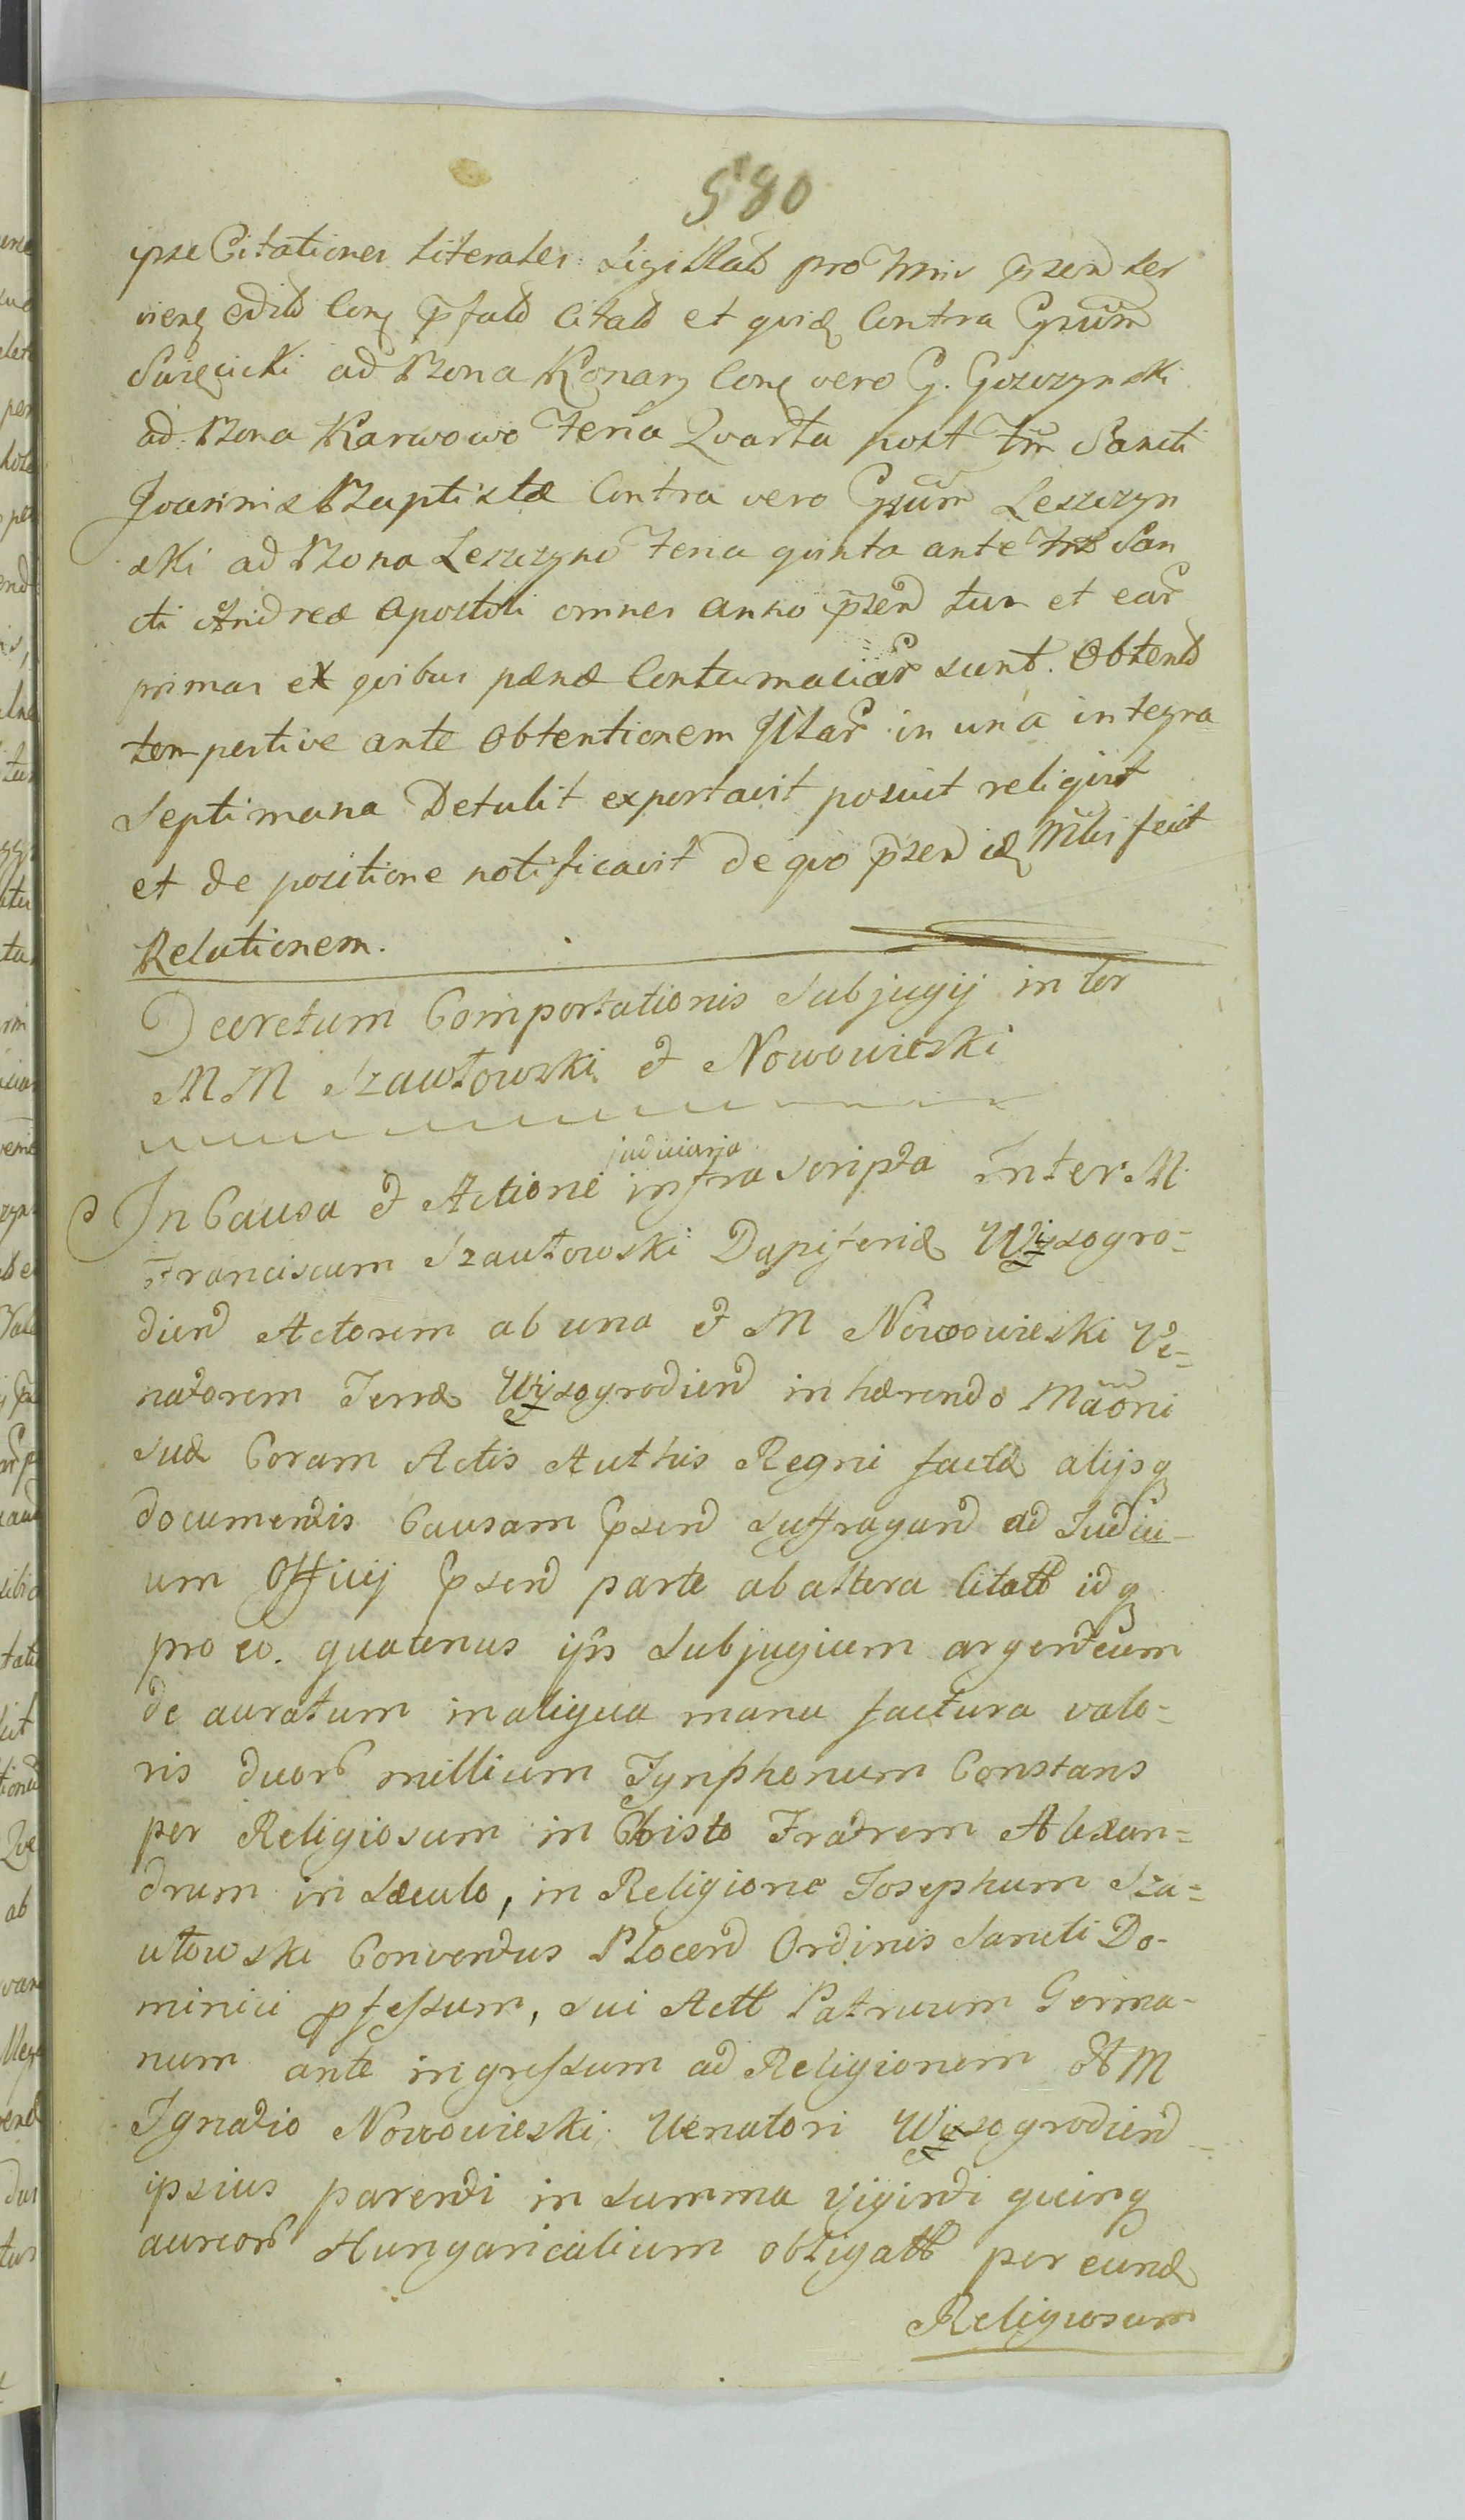 580
ipse Citationes literales Sigillatb pro Tmis pnsen ter
edid Conq pfatb Citatb et quidq Contra Gnsum
Swięcicki ad Bona Konary Conq vero G. Gozczynski
ad Bona Karwowo Feria Quarta post Tm Sancti
Joannis Baptistæ Contra vero Gnsum Leszczyn
ski ad Bona Leszczyno Feria quinta ante San
cti Andreæ Apostoli omnes anno pnsen tur et ear
primas ex quibus pænæ Contumaciar sunt. Obtentb
tempestive ante Obtentionem Illar in una integra
Septimana Detulit exportavit posuit reliquit
et de positione notificavit de quo pnsen idq Mtris fecit
Relationem.
Decretum Comportationis Subjugij inter
M M Szawłowski & Nowowieski
judiciaria
In Causa & Actione infra Scripta Inter M.
Franciscum Szautowski Dapiferidq Wysogro=
dien Actorem ab una & M Nowowieski Ve=
natorem Terræ Wysogrodien inhærendo Mãoni
Suæ Coram Actis Authis Regni factæ alijsq
documentis Causam pnsen suffragan ad Judici-
um Officij pnsen parte ab altera Citatb idq
pro eo. quatenus ipse Subjugium argenteum
de auratum in aliqua manu factura valo=
ris duorb millium Tynphonum Constans
per Religiosum in Christo Fratrem Alexan=
drum in Sæculo, in Religione Josephum Sza=
utowski Conventus Plocen Ordinis Sancti Do-
minici pfessum, sui Actt Patruum Germa-
num ante ingressum ad Religionem M
Ignatio Nowowieski Venatori Wysogrodien
ipsius parenti in summa viginti quinq
aureorb Hungaricalium obligatb per eundq
Religiosum